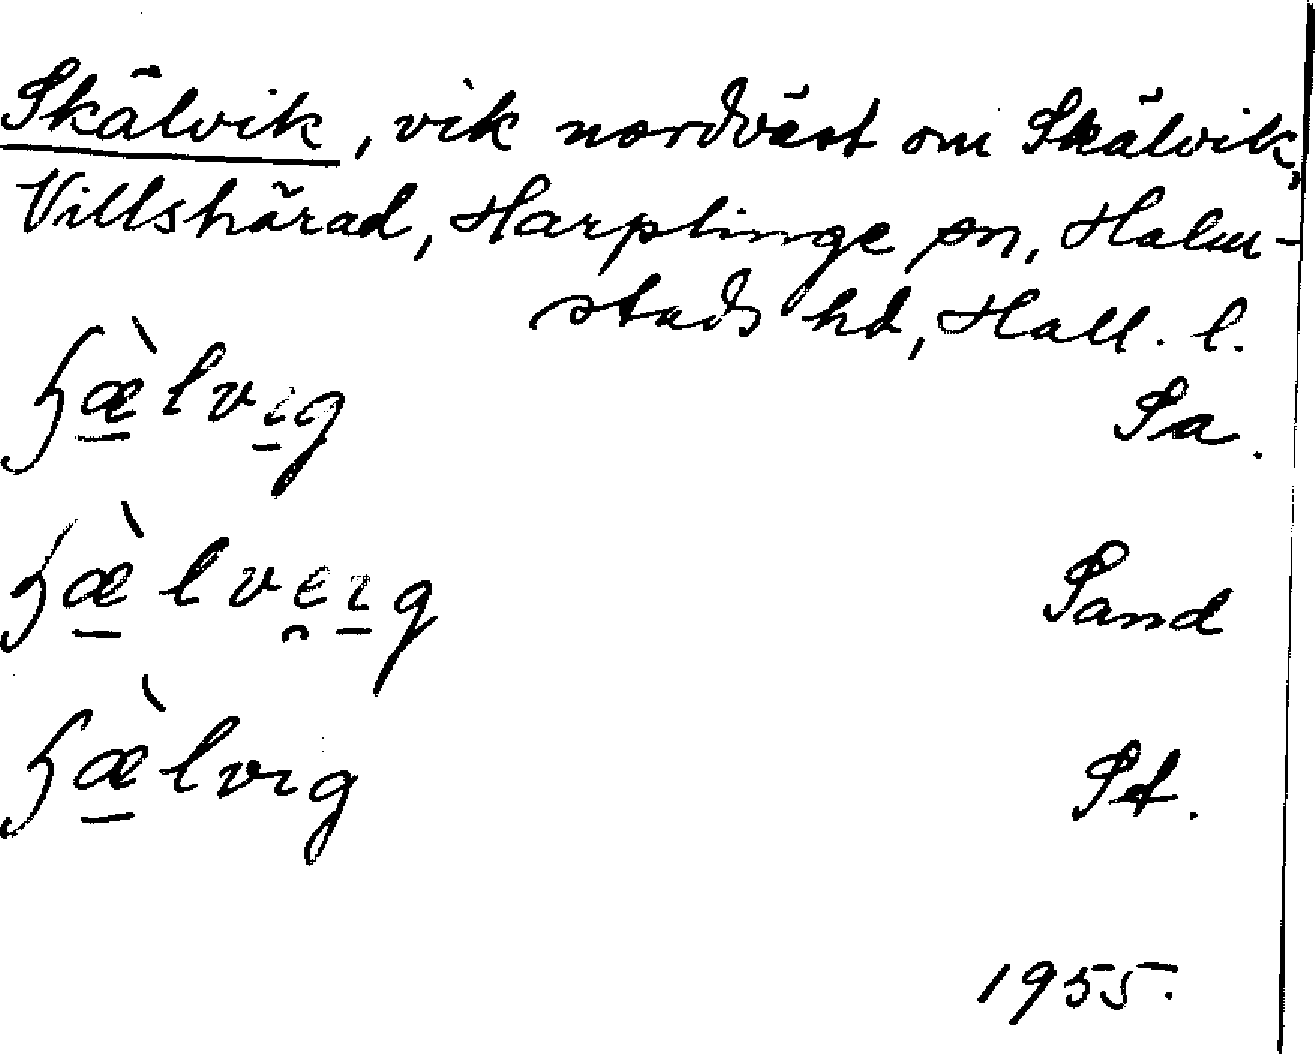 Skälvik, vik nordväst om Skälvik,
Villshärad, Harplinge sn, Halm-
stads hd, Hall. l.
ꜧæ̲̀lvi̲g Sa.
ꜧæ̲̀lve̯ɪ̲g Sand
ꜧæ̲̀lvɪg St.
1955.